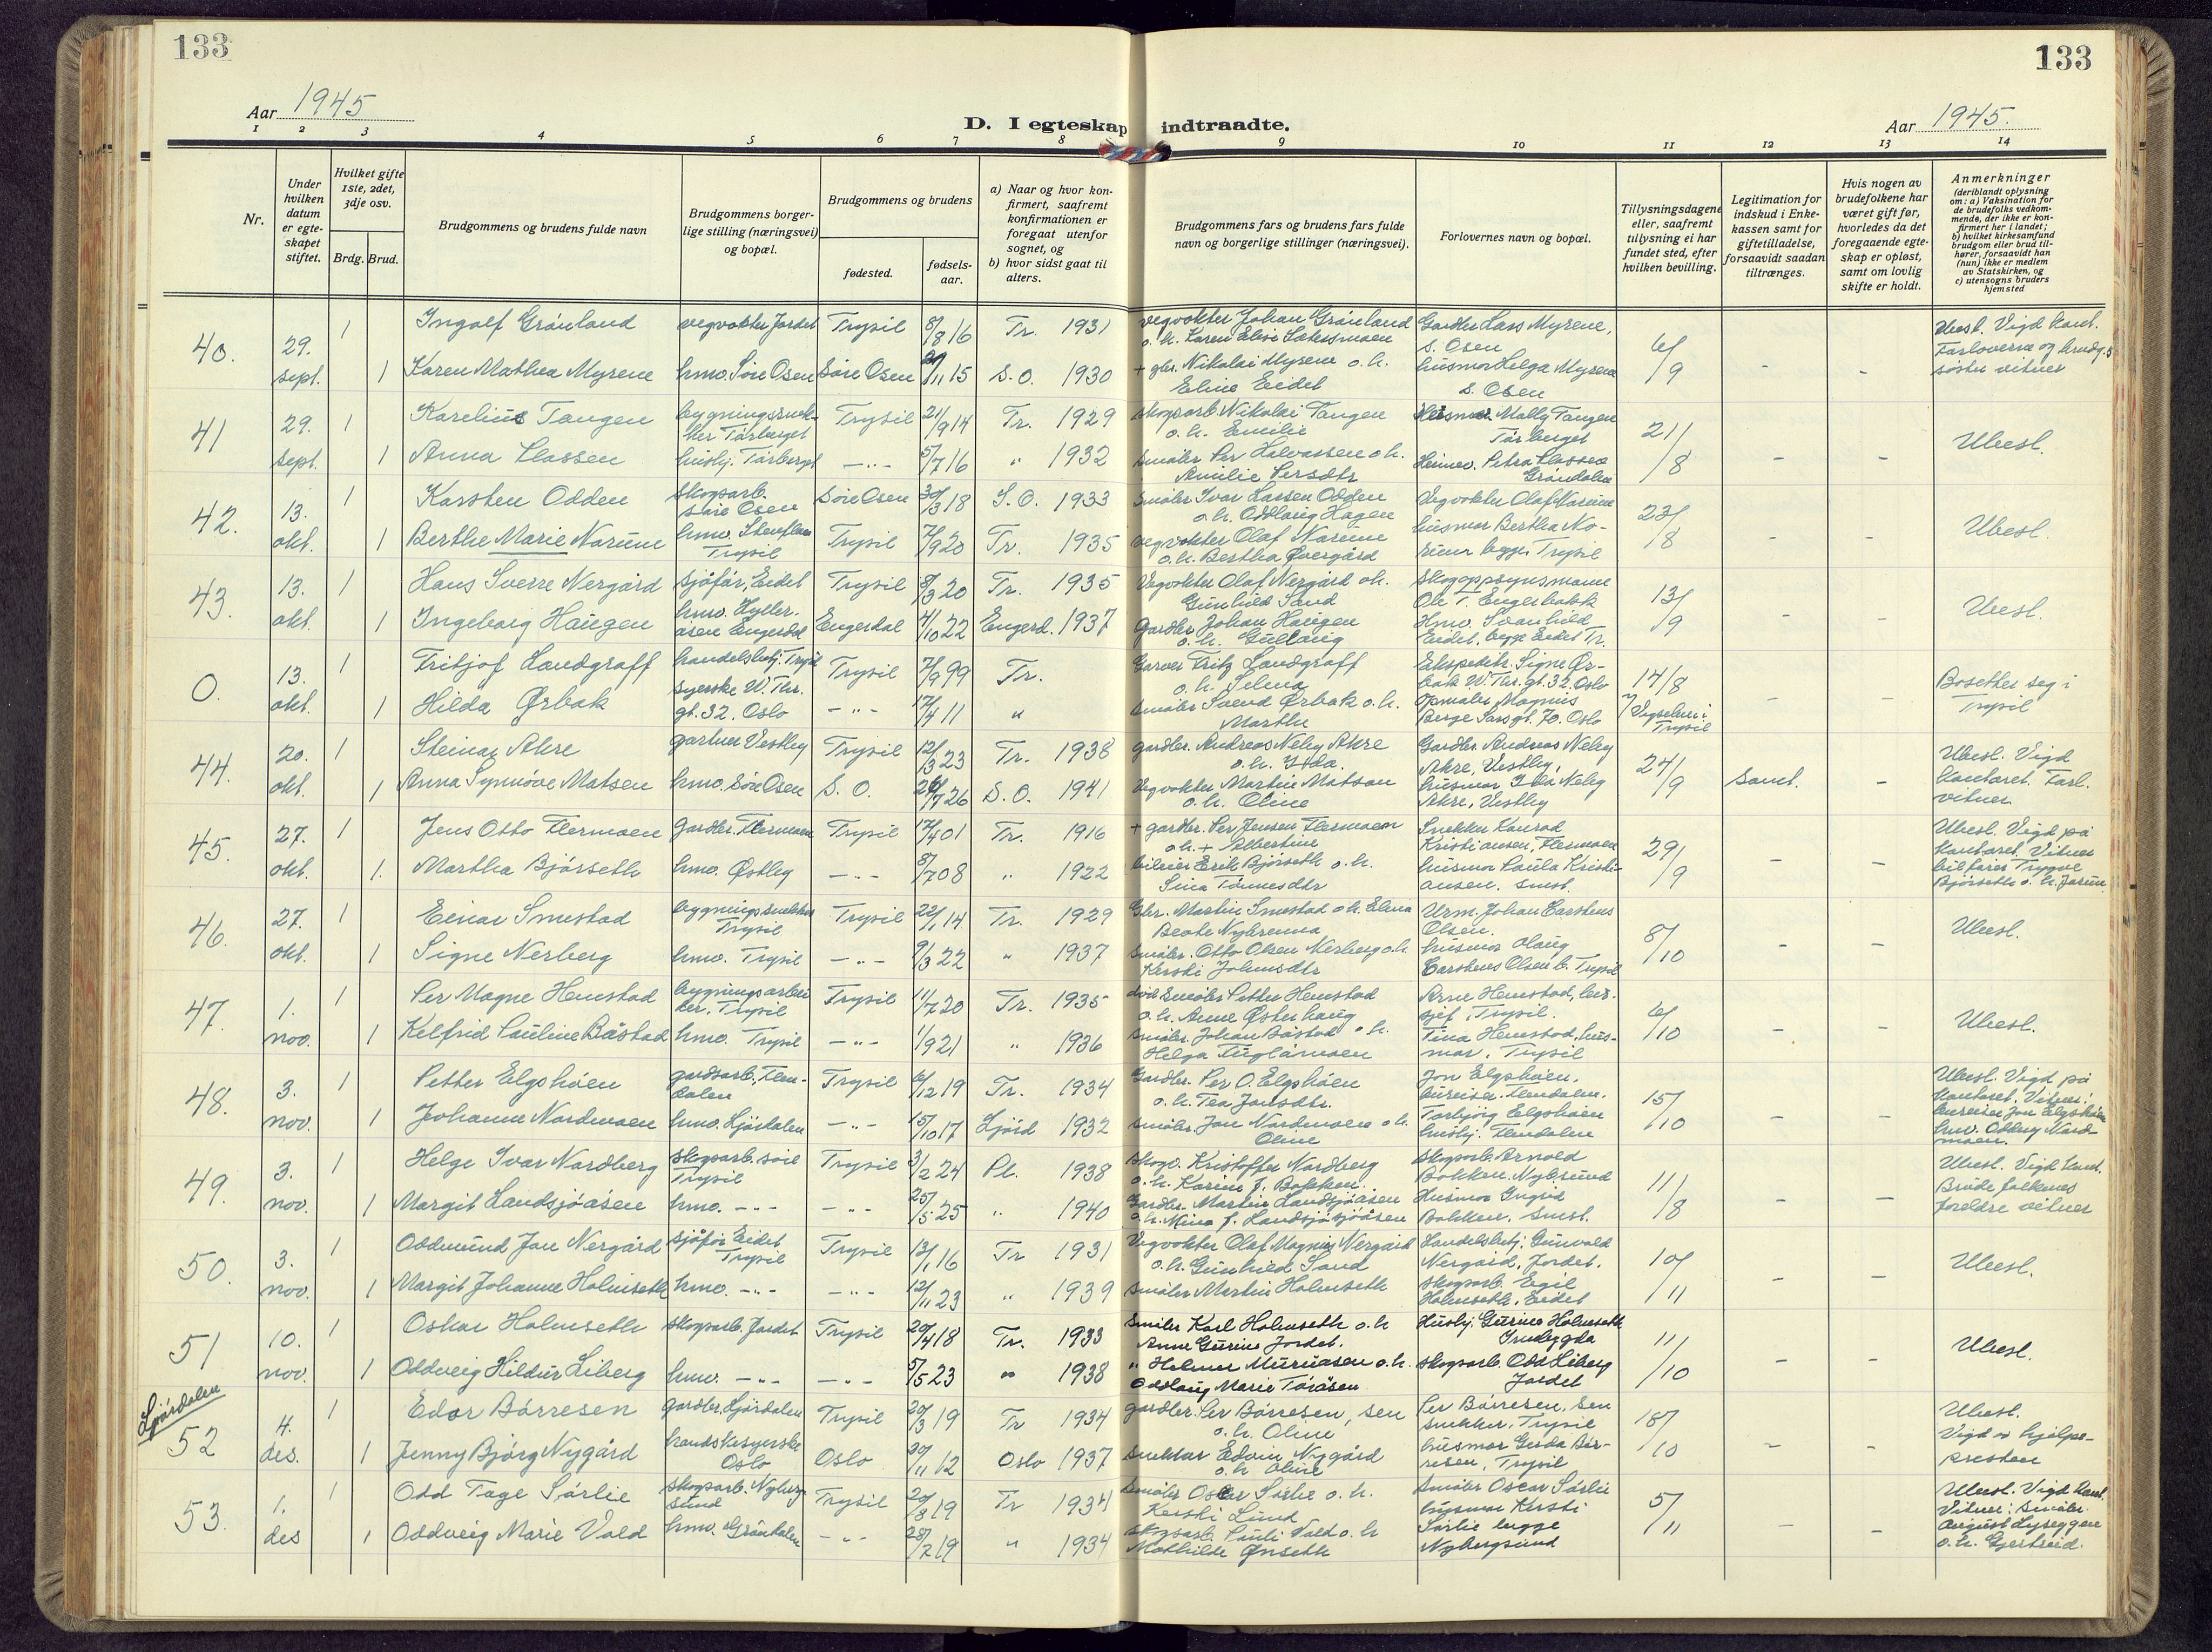 133
133
Aar 1945
D. I egteskap indtraadte.
Aar 1945.
1 2 3 4 5 6 7 8 9 10 11 12 13 14
Nr.
Under hvilken datum er egteskapet stiftet.
Hvilket gifte 1ste, 2det, 3dje osv.
Brdg. Brud.
Brudgommens og brudens fulde navn
Brudgommens borgerlige stilling (næringsvei) og bopæl.
Brudgommens og brudens
fødested.
fødselsaar.
a) Naar og hvor konfirmert, saafremt konfirmationen er foregaat utenfor sognet, og
b) hvor sidst gaat til alters.
Brudgommens fars og brudens fars fulde navn og borgerlige stillinger (næringsvei).
Forlovernes navn og bopæl.
Tillysningsdagene eller, saafremt tillysning ei har fundet sted, efter hvilken bevilling.
Legitimation for indskud i Enkekassen samt for giftetilladelse, forsaavidt saadan tiltrænges.
Hvis nogen av brudefolkene har været gift før, hvorledes da det foregaaende egteskap er opløst, samt om lovlig skifte er holdt.
Anmerkninger
(deriblandt oplysning om: a) Vaksination for de brudefolks vedkommende, der ikke er konfirmert her i landet;
b) hvilket kirkesamfund brudgom eller brud tilhører, forsaavidt han (hun) ikke er medlem av Statskirken, og
c) utensogns bruders hjemsted
40. 29. sept. 1 Ingolf Grönland vegvokter Jordet Trysil 8/8 16 Tr. 1931 vegvokter Johan Grönland o.h. Karen Elise Gardbr. Lars Myrene, S. Osen 6/9 Ubesl. Vigd kont. Forloverne og brudg.s söster vitner
1 Karen Mathea Myrene hmv. Söre Osen Söre Osen /11 15 S.O. 1930 + gbr. Nikolai Myrene o.h. Eline Eidet husmor Helga Myrene S. Osen - -
41 29. sept. 1 Karelius Tangen bygningssnekker Törberget Trysil 21/9 14 Tr. 1929 skogsarb. Nikolai Tangen o.h. Emilie Husmor Mally Tangen Törberget 21/8 - - Ubesl.
1 Anna Classen hushj. Törberget -"- 5/7 16 " 1932 Småbr. Per Halvassen o.h. Amilie Persdtr Petra Gröndalen
42. 13. okt. 1 Karsten Odden skogsarb. Söre Osen Söre Osen 30/3 18 S.O. 1933 Småbr. Ivar Larsen Odden o.h. Oddlaug Hagen Vegvokter Olaf Norune 23/8 - - Ubesl.
1 Berthe Marie Norune hmv. Trysil Trysil 7/9 20 Tr. 1935 vegvokter Olaf Norune o.h. Bertha Övergård husmor Bertha Norune begge Trysil
43. 13. okt. 1 Hans Sverre Nergård sjåför, Eidet Trysil 8/3 20 Tr. 1935 Vegvokter Olaf Nergård o.h. Gunhild Sand skogoppsynsmann Ole T. Engerbakk 13/9 - - Ubesl.
1 Ingeborg Haugen hmv. Hylleråsen Engerdal Engerdal 4/10 22 Engerd. 1937 Gardbr. Johan Haugen o.h. Gullaug Hmv. Svanhild Eidet, begge Eidet Tr.
0. 13. okt. 1 Fritjof Landgraff handelsbetj. Trysil Trysil 7/9 99 Tr. Garver Fritz Landgraff o.h. Selma Ekspeditr. Signe Ørbak W. Thr. gt. 32. Oslo 14/8 - - Bosetter seg i Trysil
1 Hilda Ørbak syerske W. Thr. gt. 32. Oslo -"- 17/4 11 " Småbr Svend Ørbak o.h. Marthe Magnus Berge Sarsgt. 70. Oslo Vigselen i Trysil
44. 20. okt. 1 Steinar Akre gartner Vestby Trysil 12/3 23 Tr. 1938 gardbr. Andreas Neby Akre o.h. Ida. Gardbr. Andreas Neby Akre, Vestby, 24/9 Samt. - Ubesl. Vigd kontoret. Forl. vitner
1 Anna Synnöve Matsen hmv. Söre Osen S.O. /7 26 S.O. 1941 Vegvokter Martin Matson o.h. Oline husmor Ida Neby Akre, Vestby
45. 27. okt. 1 Jens Otto Flermoen Gardbr. Flermoen Trysil 17/4 01 Tr. 1916 + gardbr. Per Jensen Flermoen o.h. + Albertine Snekker Konrad Kristiansen, Flermoen 29/9 - - Ubesl. Vigd på kontoret. Vitner Trygve Björseth o.h. Jorun
1. Martha Björseth hmv. Østby -"- 8/7 08 " 1922 Erik Björseth o.h. Sina Tönnesdtr husmor Paula Kristiansen, smst.
46. 27. okt. 1 Einar Smestad bygningssnekker Trysil Trysil 22/1 14 Tr. 1929 Gbr. Martin Smestad o.h. Elena Beate Nybrenna Urm. Johan Carstens Olsen. 8/10 - - Ubesl.
1 Signe Nerberg hmv. Trysil -"- 9/3 22 " 1937 Småbr. Otto Olsen Nerberg o.h. Kersti Johnsdtr husmor Olaug Carstens Olsen b. Trysil
47. 1. nov. 1 Per Magne Hemstad bygningsarbeider, Trysil Trysil 11/7 20 Tr. 1935 Småbr Petter Hemstad o.h. Anne Østerhaug Arne Hemstad, Trysil. 6/10 - - Ubesl.
1 Kelfrid Pauline Båstad hmv. Trysil -"- 1/9 21 " 1936 Småbr. Johan Båstad o.h. Helga Tuglåmoen Tina Hemstad, husmor, Trysil
48. 3. nov. 1 Petter Elgshöen gardsarb. Flendalen Trysil 6/12 19 Tr. 1934 Gardbr. Per O. Elgshöen o.h. Tea Jonsdtr. Jon Elgshöen, bureiser. Flendalen. 15/10 - - Ubesl. Vigd på kontoret. Vitner: bureiser Jon Elgshöen hmv. Oddny Nordmoen.
1 Johanne Nordmoen hmv. Ljördalen -"- 15/10 17 Ljörd 1932 Småbr. Jon Nordmoen o.h. Oline Torbjörg Elgshöen hushj. Flendalen
49. 3. nov. 1 Helge Ivar Nordberg skogsarb. Trysil Trysil 3/2 24 Pl. 1938 skogv. Kristoffer Nordberg o.h. Karen J. Bakken. skogsarb. Arnold Bakken. Nybsund 11/8 - - Ubesl. Vigd kont. Brudefolkenes foreldre vitner
1 Margit Landsjöåsen hmv. -"- -"- 25/5 25 " 1940 Gardbr. Martin Landsjöåsen o.h. Mina J. Landsjösjöåsen Husmor Ingrid Bakken. smst.
50. 3. nov. 1 Oddmund Jan Nergård sjåför Eidet Trysil Trysil 13/1 16 Tr 1931 Vegvokter Olaf Magnus Nergård o.h. Gunhild Sand Handelsbetj. Gunvald Nergård, Jordet. 10/11 - - Ubesl.
1 Margit Johanne Holmseth hmv. -"- -"- 12/11 23 " 1939 Småbr Martin Holmseth skogsarb. Egil Holmseth. Eidet
51 10. nov. 1 Oskar Holmseth skogsarb. Jordet Trysil 20/4 18 Tr. 1933 Småbr Karl Holmseth o.h Anne Gurine Jordet. Hushj. Gurine Holmseth 11/10 - - Ubesl.
1 Oddveig Hildur Liberg hmv. -"- -"- 5/5 23 " 1938 " Helmer Muruåsen o.h. Oddlaug Marie Töråsen skogsarb. Odd Liberg Jordet
Ljördalen
52 4. des. 1 Edor Börresen gardbr. Ljördalen Trysil 20/3 19 Tr 1934 gardbr. Per Börresen, sen o.h. Oline Per Börresen, sen snekker. Trysil 18/10 - - Ubesl. Vigd av hjelpepresten
1 Jenny Bjørg Nygård handskesyerske Oslo Oslo 20/11 12 Oslo 1937 snekker Edvin Nygård o.h. Oline husmor Gerda Börresen, Trysil
53. 1. des 1 Odd Tage Sörlie skogsarb. Nybergsund Trysil 20/8 19 Tr 1934 Småbr Oscar Sörlie o.h. Kersti Lund Småbr Oscar Sörlie 5/11 - - Ubesl. Vigd kont. Vitner: småbr. August Lyseggen o.h. Gjertrud.
1 Oddveig Marie Vold hmv. Gröndalen -"- 28/7 19 " 1934 skogsarb. Pauli Vold o.h Mathilde Ønseth husmor Kersti Sörlie begge Nybergsund